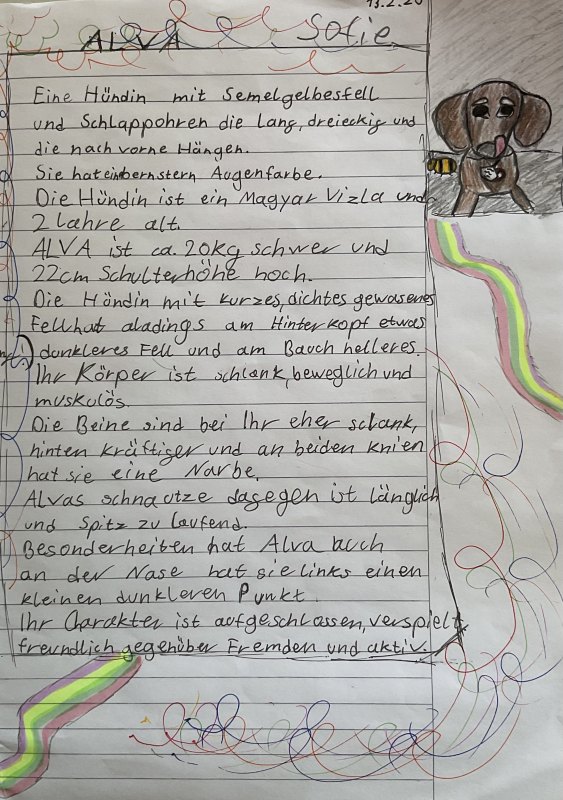 13.2.20
ALVA Sofie
Eine Hündin mit Semelgelbesfell
und Schlappohren die Lang, dreieckig und
die nach vorne Hängen.
Sie hat ein bernstern Augenfarbe.
Die Hündin ist ein Magyar Vizla und
2 Iahre alt.
ALVA ist ca. 20kg schwer und
22cm Schulterhöhe hoch.
Die Hündin mit kurzes, dichtes gewasenes
Fell hat aladings am Hinterkopf etwas
dunkleres Fell und am Bauch helleres.
Ihr Körper ist schlank, beweglich und
muskulös.
Die Beine sind bei Ihr eher schlank,
hinten kräftiger und an beiden knien
hat sie eine Narbe.
Alvas schnautze dagegen ist länglich
und Spitz zu laufend.
Besonderheiten hat Alva auch
an der Nase hat sie links einen
kleinen dunkleren Punkt.
Ihr Charakter ist aufgeschlossen, verspielt,
freundlich gegenüber Fremden und aktiv.